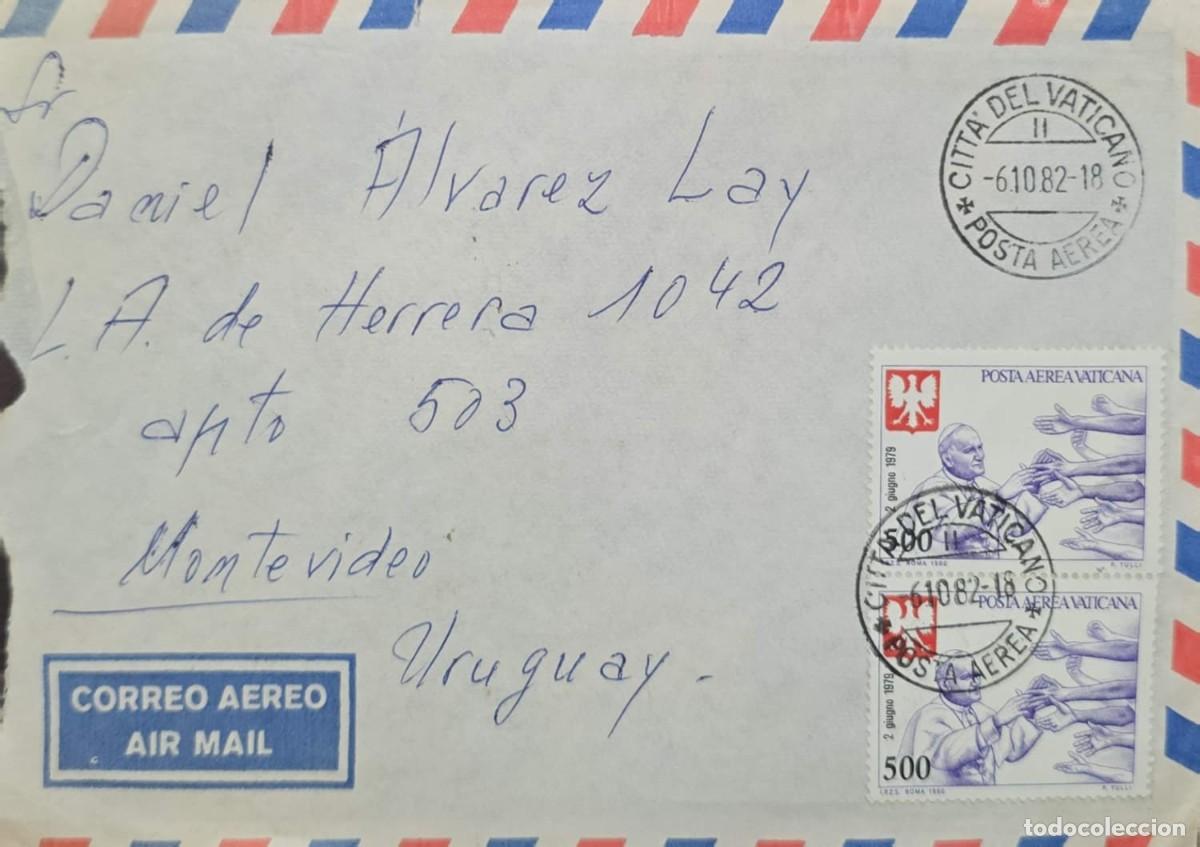 Sr
Daniel Álvarez Lay
L.A. de Herrera 1042
apto 503
Montevideo
Uruguay.
CORREO AEREO
AIR MAIL
CITTA' DEL VATICANO
II
-6.10.82-18
POSTA AEREA
POSTA AEREA VATICANA
2 giugno 1979
500
I.P.Z.S. ROMA 1980
P. TULLI
CITTA' DEL VATICANO
II
-6.10.82-18
POSTA AEREA
POSTA AEREA VATICANA
2 giugno 1979
500
I.P.Z.S. ROMA 1980
P. TULLI
todocoleccion